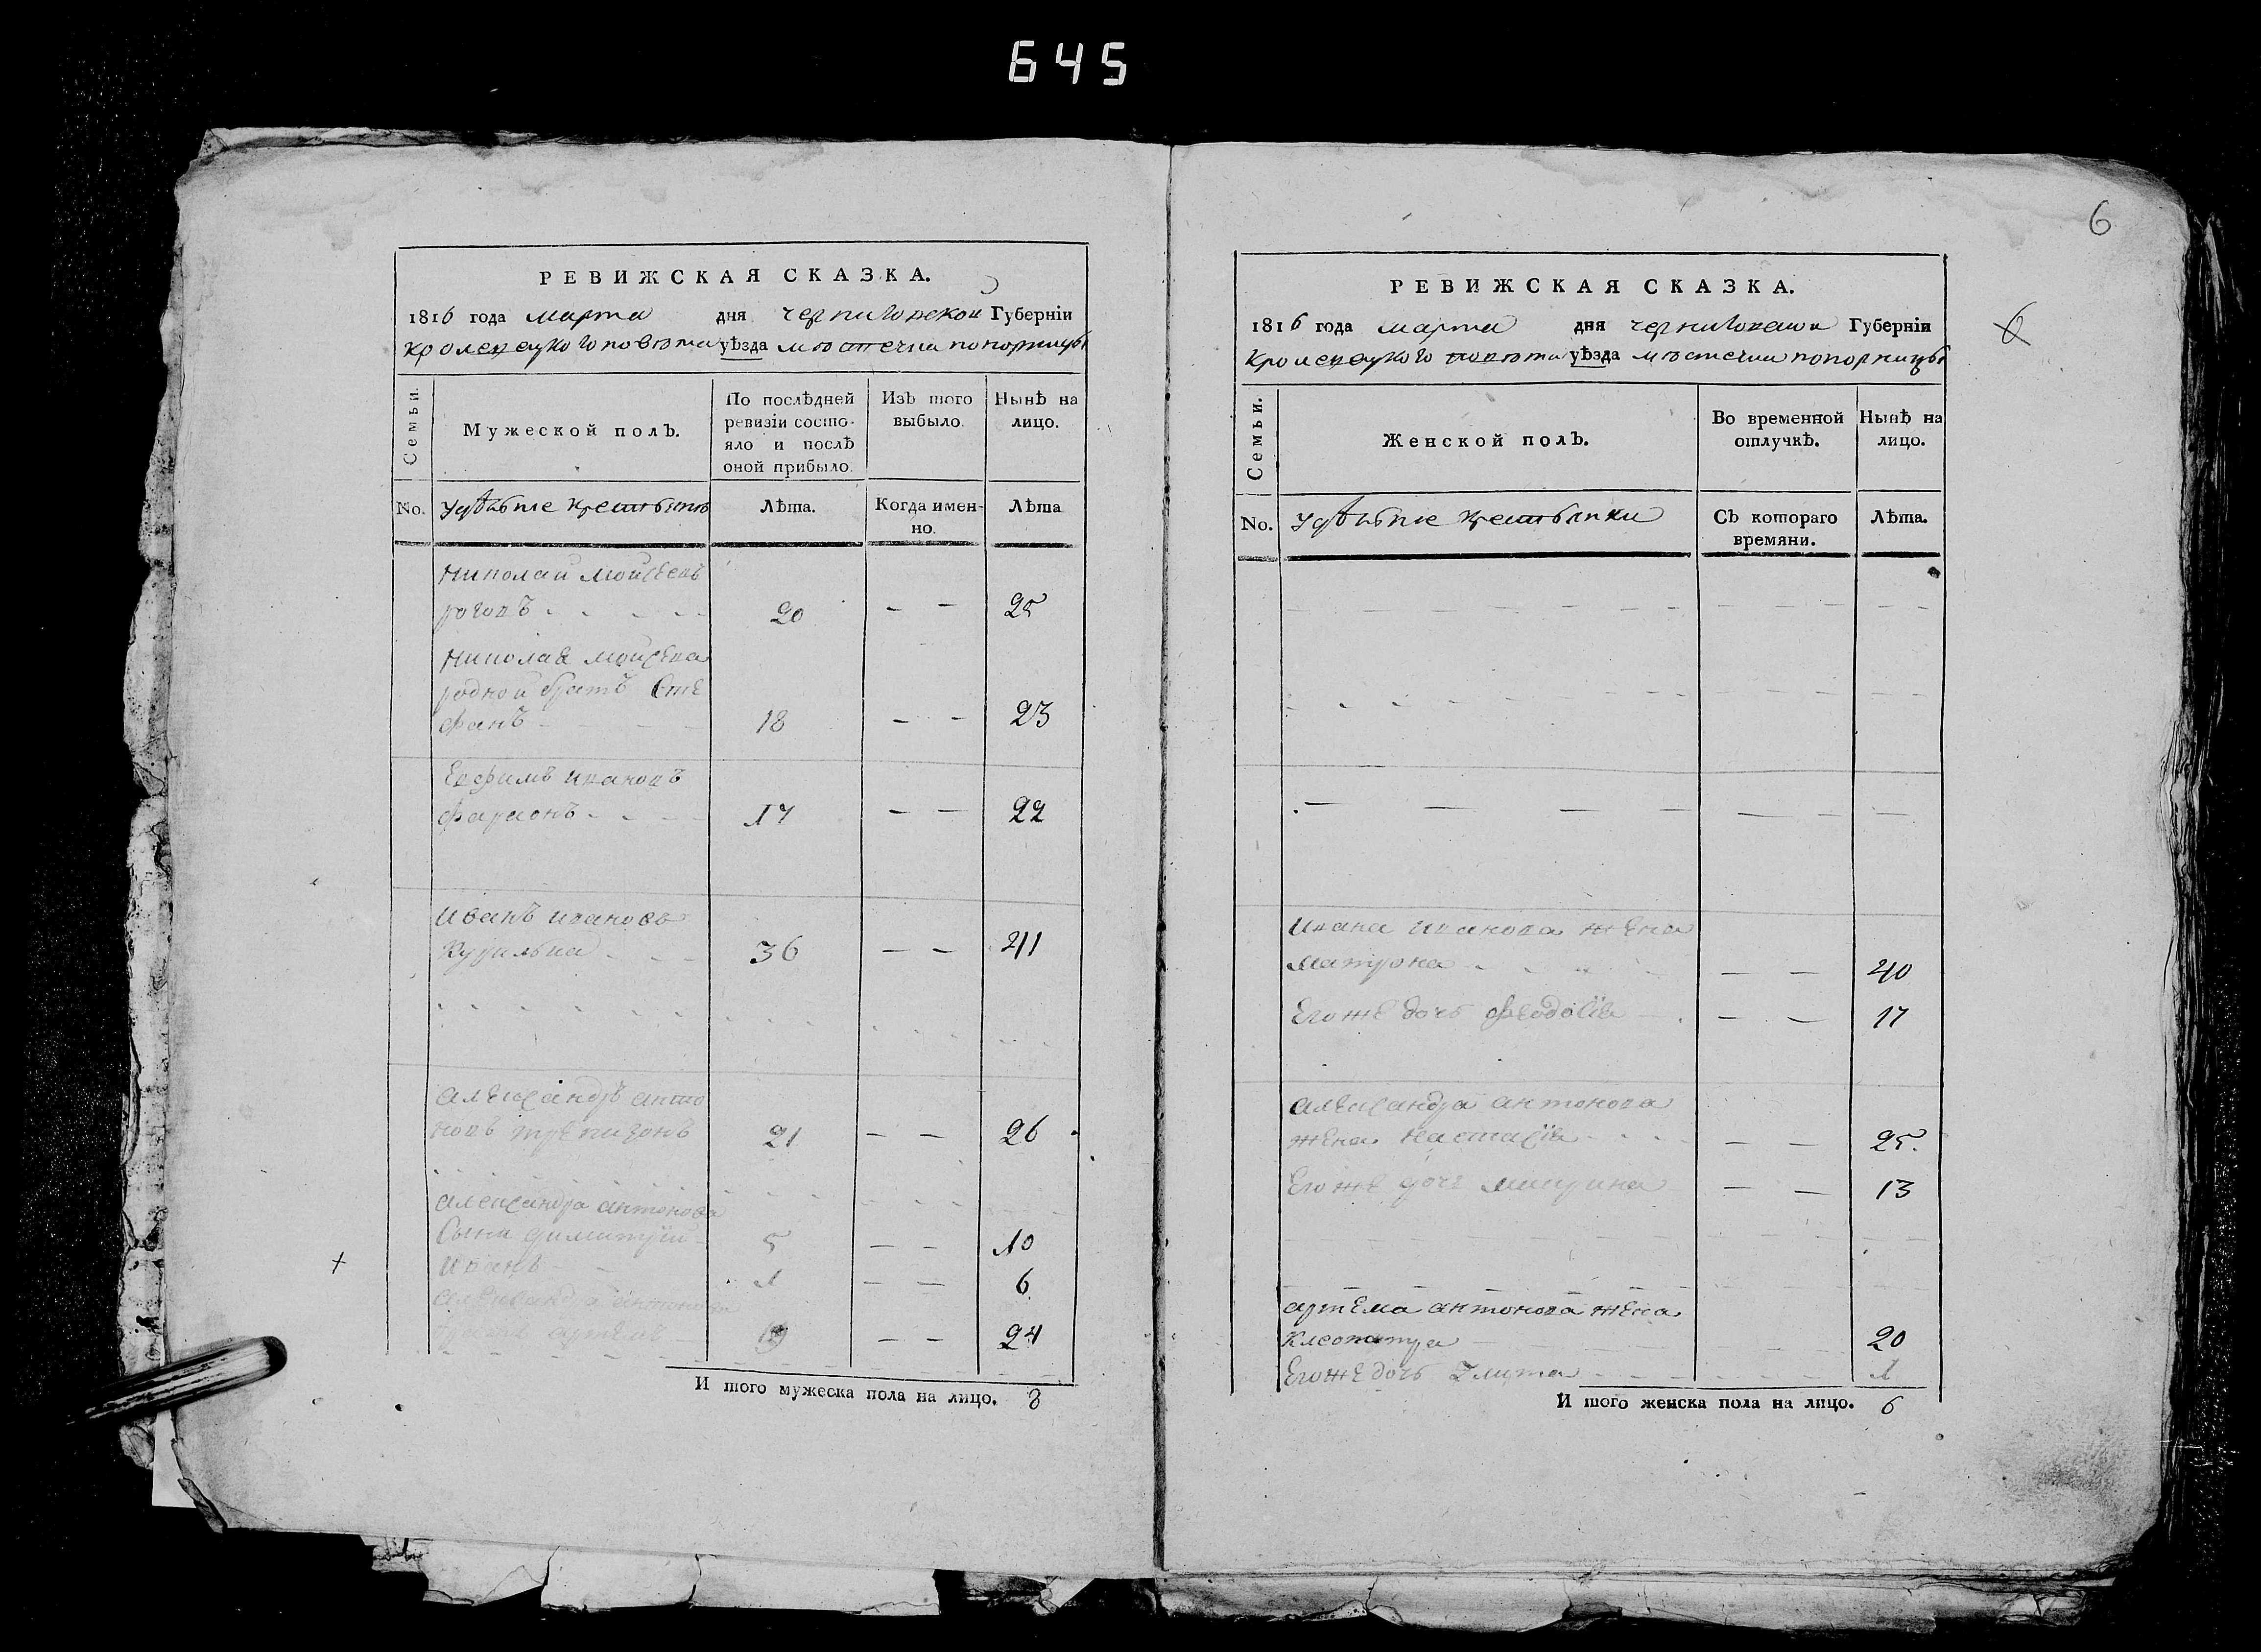 645
РЕВИЖСКАЯ СКАЗКА.
1816 года марта дня черниговской Губерніи
Кролевецкого повета уѣзда местечка понорницы
Семьи.
Мужеской полъ.
По послѣдней ревизіи состо-
яло и послѣ оной прибыло.
Изъ того выбыло.
Нынѣ на лицо.
No.
Удѣльные крестьяне
Лѣта.
Когда имен-
но.
Лѣта
Николай Мойсеевъ
роговъ 20 — — 25
Николая мойсеева
родной братъ Сте
фанъ 18 — — 23
Евфимъ ивановъ
фарионъ 17 — — 22
Иванъ ивановъ
36 — — 41
александръ анто
новъ 21 — — 26
александра антонова
Сына димитрий 5 — — 10
иванъ 1 — — 6
александра антонова
19 — — 24
И того мужеска пола на лицо. 8
6
РЕВИЖСКАЯ СКАЗКА.
1816 года марта дня черниговской Губерніи
6
Кролевецкого повета уѣзда местечка понорницы
Семьи.
Женской полъ.
Во временной отлучкѣ.
Нынѣ на лицо.
No.
Удѣльные крестьянки
Съ котораго времяни.
Лѣта.
ивана иванова жена
матрона — — 40
Его же дочь феодосія — — 17
александра антонова
жена настасія — — 25.
Его же дочь марина — — 13
артема антонова жена
клеопатра 20
Его же дочь улита 1
И того женска пола на лицо. 6